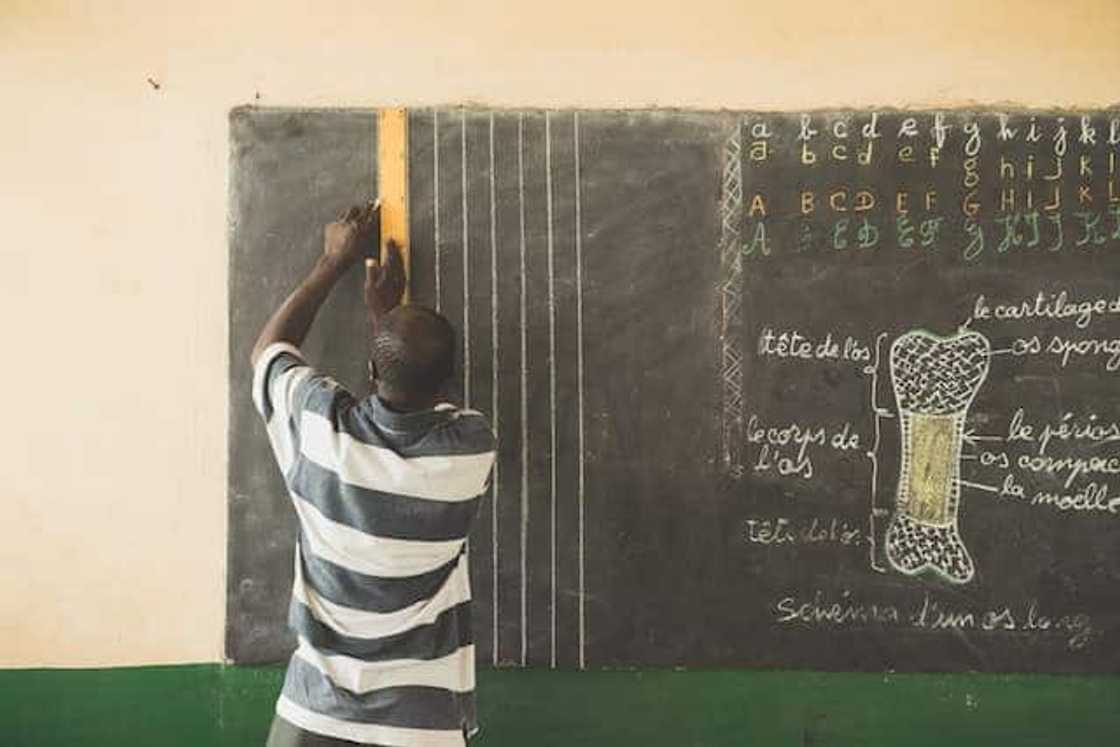 a b c d e f g h i j k l
a b c d e f g h i j k l
A B C D E F G H I J K L
A B C D E F G H I J K L
le cartilage
tête de l'os
os spong
le périos
le corps de
l'os
os compac
la moelle
tête de l'os
Schéma d'un os long